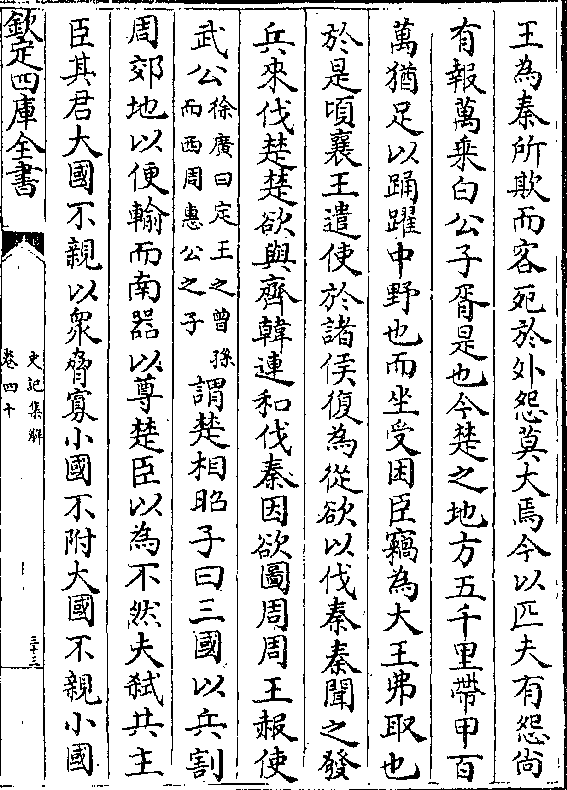 王為秦所欺而客死於外怨莫大焉今以匹夫有怨尚
有報萬乗白公子胥是也今楚之地方五千里帶甲百
萬猶足以踊躍中野也而坐受困臣竊為大王弗取也
於是頃襄王遣使於諸侯復為從欲以伐秦秦聞之發
兵來伐楚楚欲與齊韓連和伐秦因欲圖周周王赧使
武公徐廣曰定王之曽孫而西周惠公之子謂楚相昭子曰三國以兵割
周郊地以便輸而南器以尊楚臣以為不然夫弑共主
臣其君大國不親以衆脅寡小國不附大國不親小國
欽定四庫全書
史記集解
卷四十
三十三